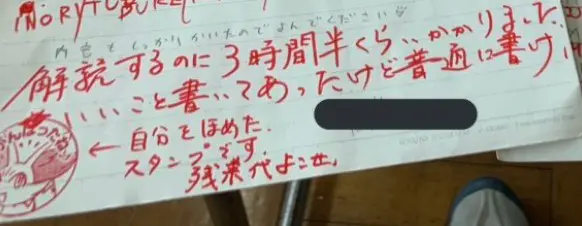 内容もしっかりかいたのでよんでください
解読するのに3時間半くらいかかりました
いいこと書いてあったけど普通に書け
← 自分をほめた
スタンプです。
残業代よこせ